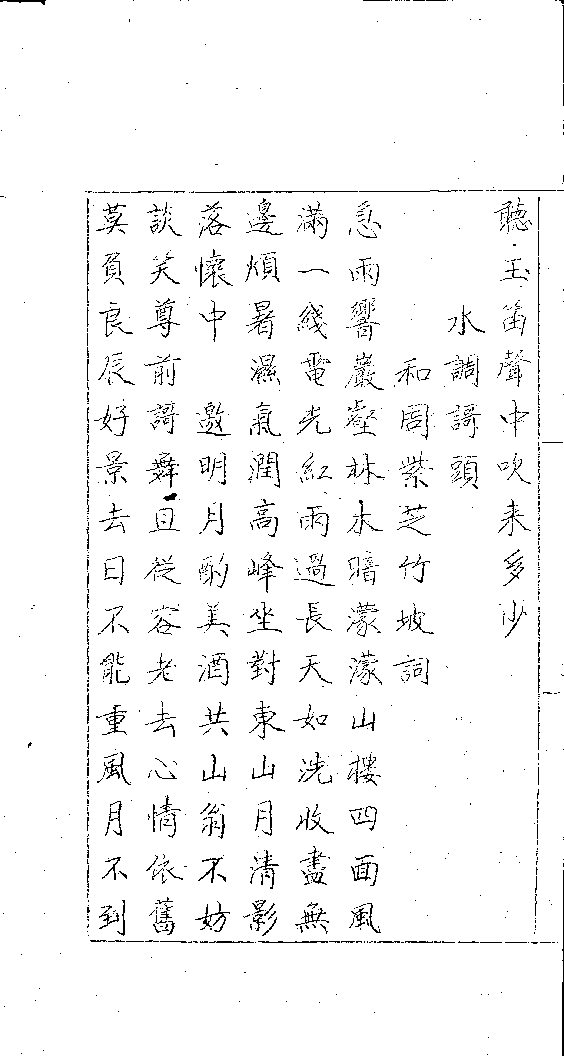 聽玉笛聲中吹来多少
水調謌頭
和周紫芝竹坡詞
急雨響巖壑林木暗濛濛山樓四面風
滿一綫電光紅雨過長天如洗收盡無
邊煩暑濕氣潤高峰坐對東山月清影
落懷中 邀明月酌美酒共山翁不妨
談笑尊前謌舞且從容老去心情依舊
莫負良辰好景去日不能重風月不到